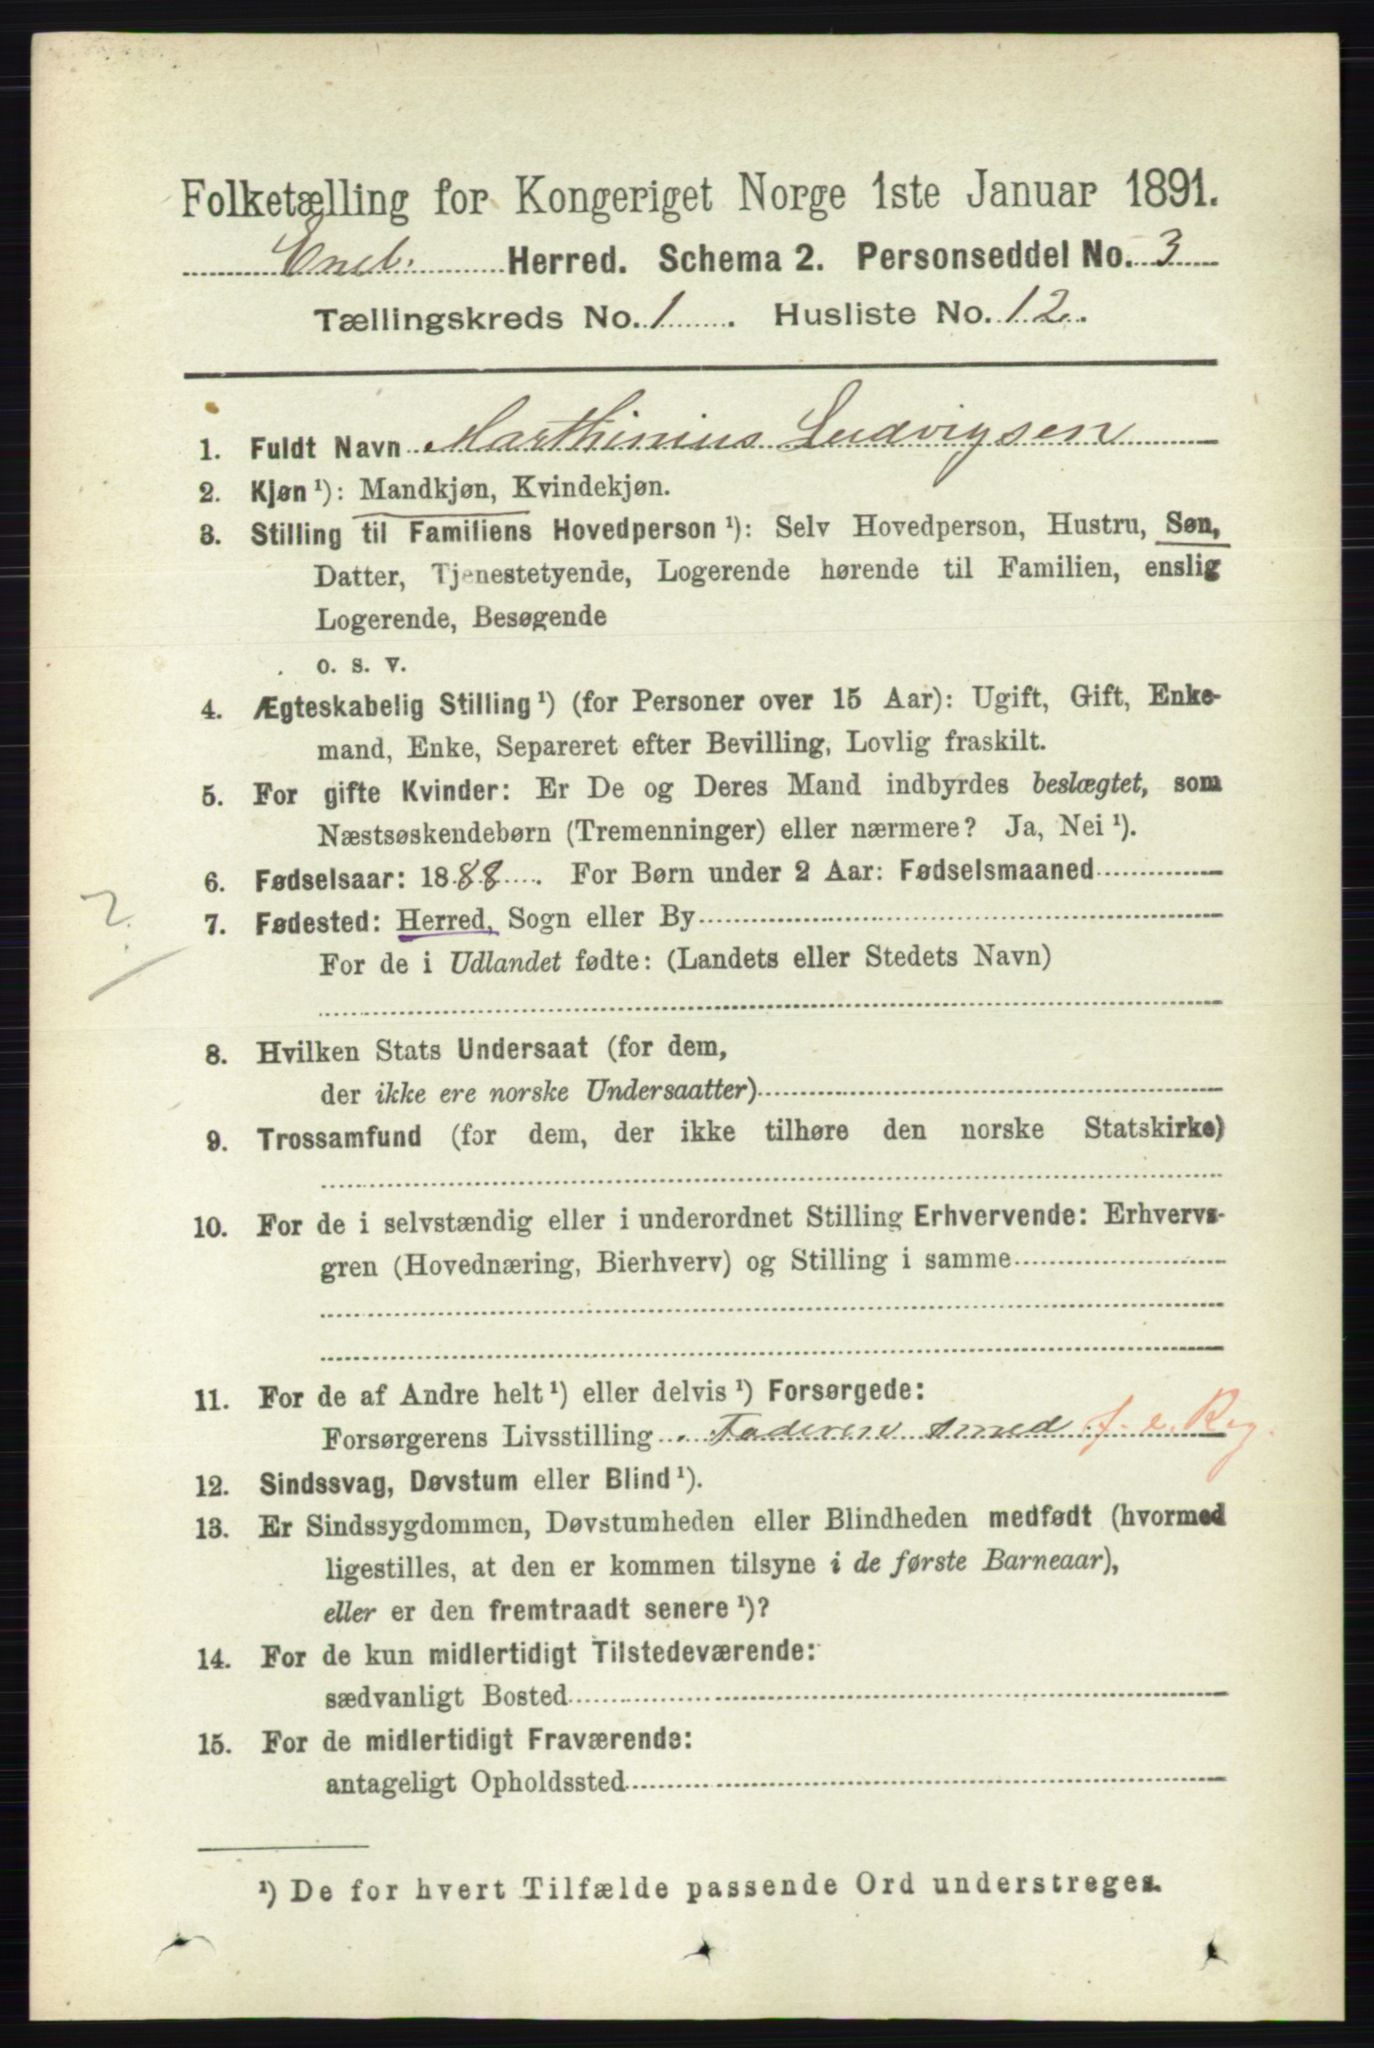 Folketælling for Kongeriget Norge 1ste Januar 1891.
Eneb. Herred. Schema 2. Personseddel No. 3
Tællingskreds No. 1. Husliste No. 12.
1. Fuldt Navn Marthinius Ludvigsen
2. Kjøn ¹): Mandkjøn, Kvindekjøn.
3. Stilling til Familiens Hovedperson ¹): Selv Hovedperson, Hustru, Søn,
Datter, Tjenestetyende, Logerende hørende til Familien, enslig
Logerende, Besøgende
o. s. v.
4. Ægteskabelig Stilling ¹) (for Personer over 15 Aar): Ugift, Gift, Enke-
mand, Enke, Separeret efter Bevilling, Lovlig fraskilt.
5. For gifte Kvinder: Er De og Deres Mand indbyrdes beslægtet, som
Næstsøskendebørn (Tremenninger) eller nærmere? Ja, Nei ¹).
6. Fødselsaar: 1888. For Børn under 2 Aar: Fødselsmaaned
?
7. Fødested: Herred, Sogn eller By
For de i Udlandet fødte: (Landets eller Stedets Navn)
8. Hvilken Stats Undersaat (for dem,
der ikke ere norske Undersaatter)
9. Trossamfund (for dem, der ikke tilhøre den norske Statskirke)
10. For de i selvstændig eller i underordnet Stilling Erhvervende: Erhvervs-
gren (Hovednæring, Bierhverv) og Stilling i samme
11. For de af Andre helt ¹) eller delvis ¹) Forsørgede:
Forsørgerens Livsstilling Faderen smed f. e. Reg.
12. Sindssvag, Døvstum eller Blind ¹).
13. Er Sindssygdommen, Døvstumheden eller Blindheden medfødt (hvormed
ligestilles, at den er kommen tilsyne i de første Barneaar),
eller er den fremtraadt senere ¹)?
14. For de kun midlertidigt Tilstedeværende:
sædvanligt Bosted
15. For de midlertidigt Fraværende:
antageligt Opholdssted
¹) De for hvert Tilfælde passende Ord understreges.